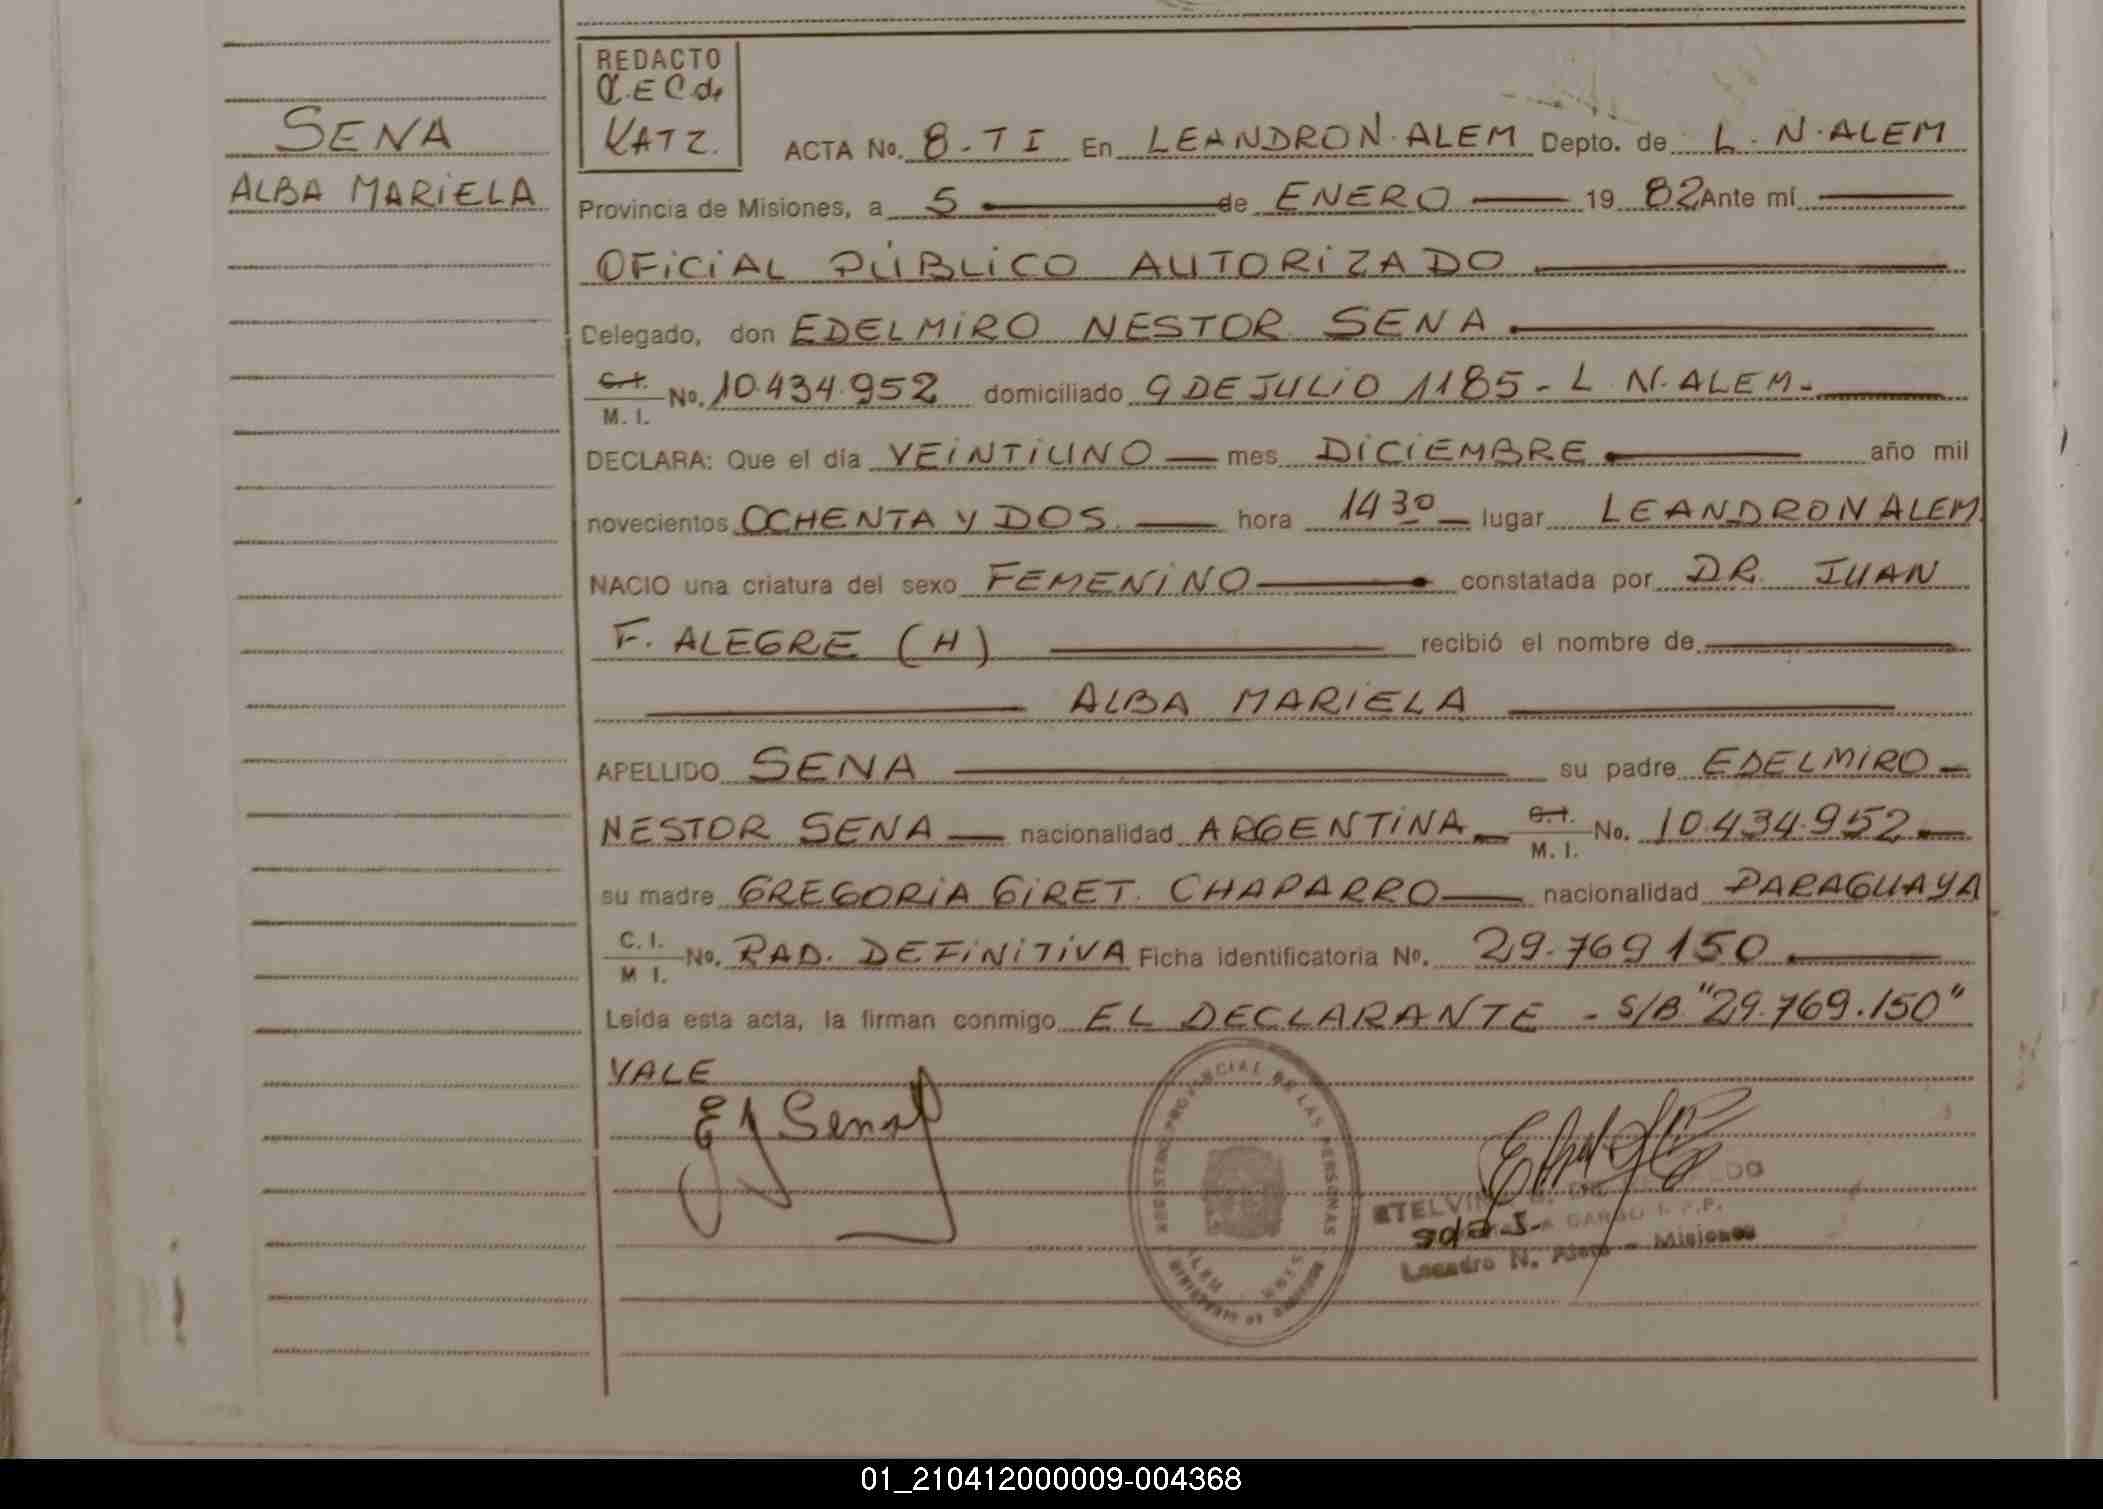 SENA
ALBA MARIELA
REDACTO
C. E C de
KATZ.
ACTA No. 8. T I En LEANDRO N. ALEM Depto. de L. N. ALEM
Provincia de Misiones, a 5 de ENERO 19 82 Ante mí
OFICIAL PÚBLICO AUTORIZADO
Delegado, don EDELMIRO NESTOR SENA
C. I. M. I. No. 10.434.952 domiciliado 9 DE JULIO 1185 - L. N. ALEM -
DECLARA: Que el día VEINTIUNO mes DICIEMBRE año mil
novecientos OCHENTA Y DOS. hora 14 30 lugar LEANDRO N ALEM
NACIO una criatura del sexo FEMENINO constatada por DR. JUAN
F. ALEGRE (H) recibió el nombre de
ALBA MARIELA
APELLIDO SENA su padre EDELMIRO
NESTOR SENA nacionalidad ARGENTINA C. I. M. I. No. 10.434.952
su madre GREGORIA GIRET. CHAPARRO nacionalidad PARAGUAYA
C. I. M I. No. RAD. DEFINITIVA Ficha identificatoria No. 29.769 150
Leída esta acta, la firman conmigo EL DECLARANTE - S/B "29.769.150"
VALE
E Sena
REGISTRO PROVINCIAL DE LAS PERSONAS
ALEM
Leandro N. Alem - Misiones
01_210412000009-004368